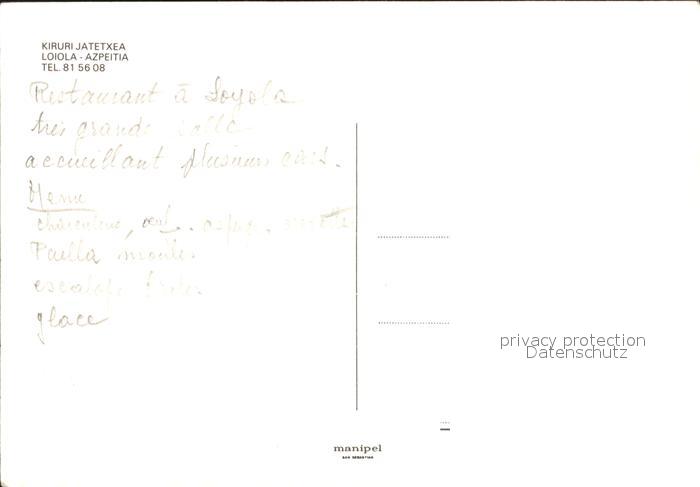 KIRURI JATETXEA
LOIOLA - AZPEITIA
TEL. 81 56 08
Restaurant à Loyola
très grande salle
accueillant plusieurs cars.
Menu
Paella moules
escalope frites
glace
privacy protection
Datenschutz
manipel
SAN SEBASTIAN